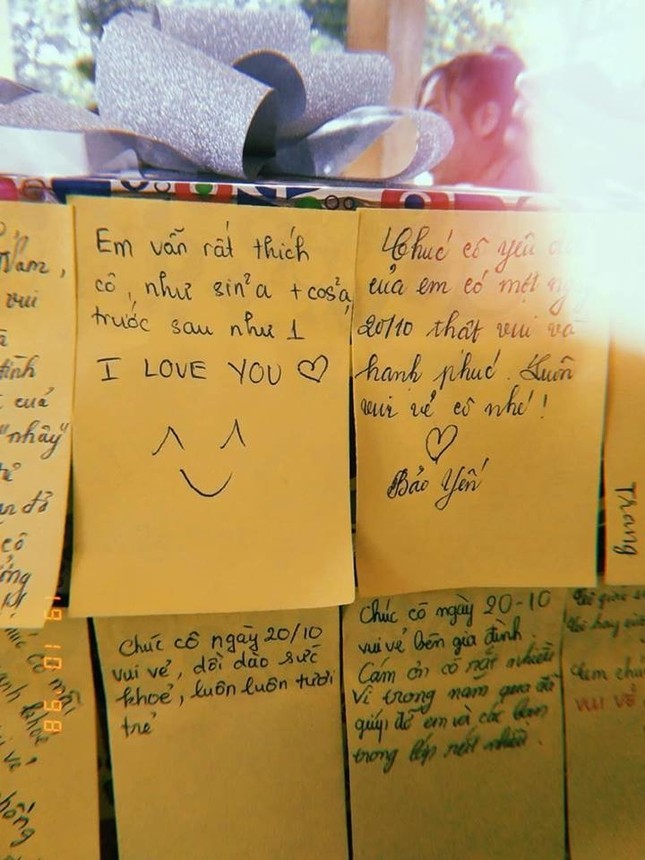 Nam,
vui
đình
cuả
"nhây"
cô
Em vẫn rất thích
cô, như sin²a + cos²a,
trước sau như 1
I LOVE YOU ♡
Chúc cô yêu
của em có một
20/10 thật vui và
hạnh phúc. Luôn
vui vẻ cô nhé!
♡
Bảo Yến
Trang
Chúc cô ngày 20/10
vui vẻ, dồi dào sức
khoẻ, luôn luôn tươi
trẻ
Chúc cô ngày 20-10
vui vẻ bên gia đình.
Cám ơn cô rất nhiều
vì trong năm qua đã
giúp đỡ em và các bạn
trong lớp rất nhiều.
vui vẻ
19 10 98